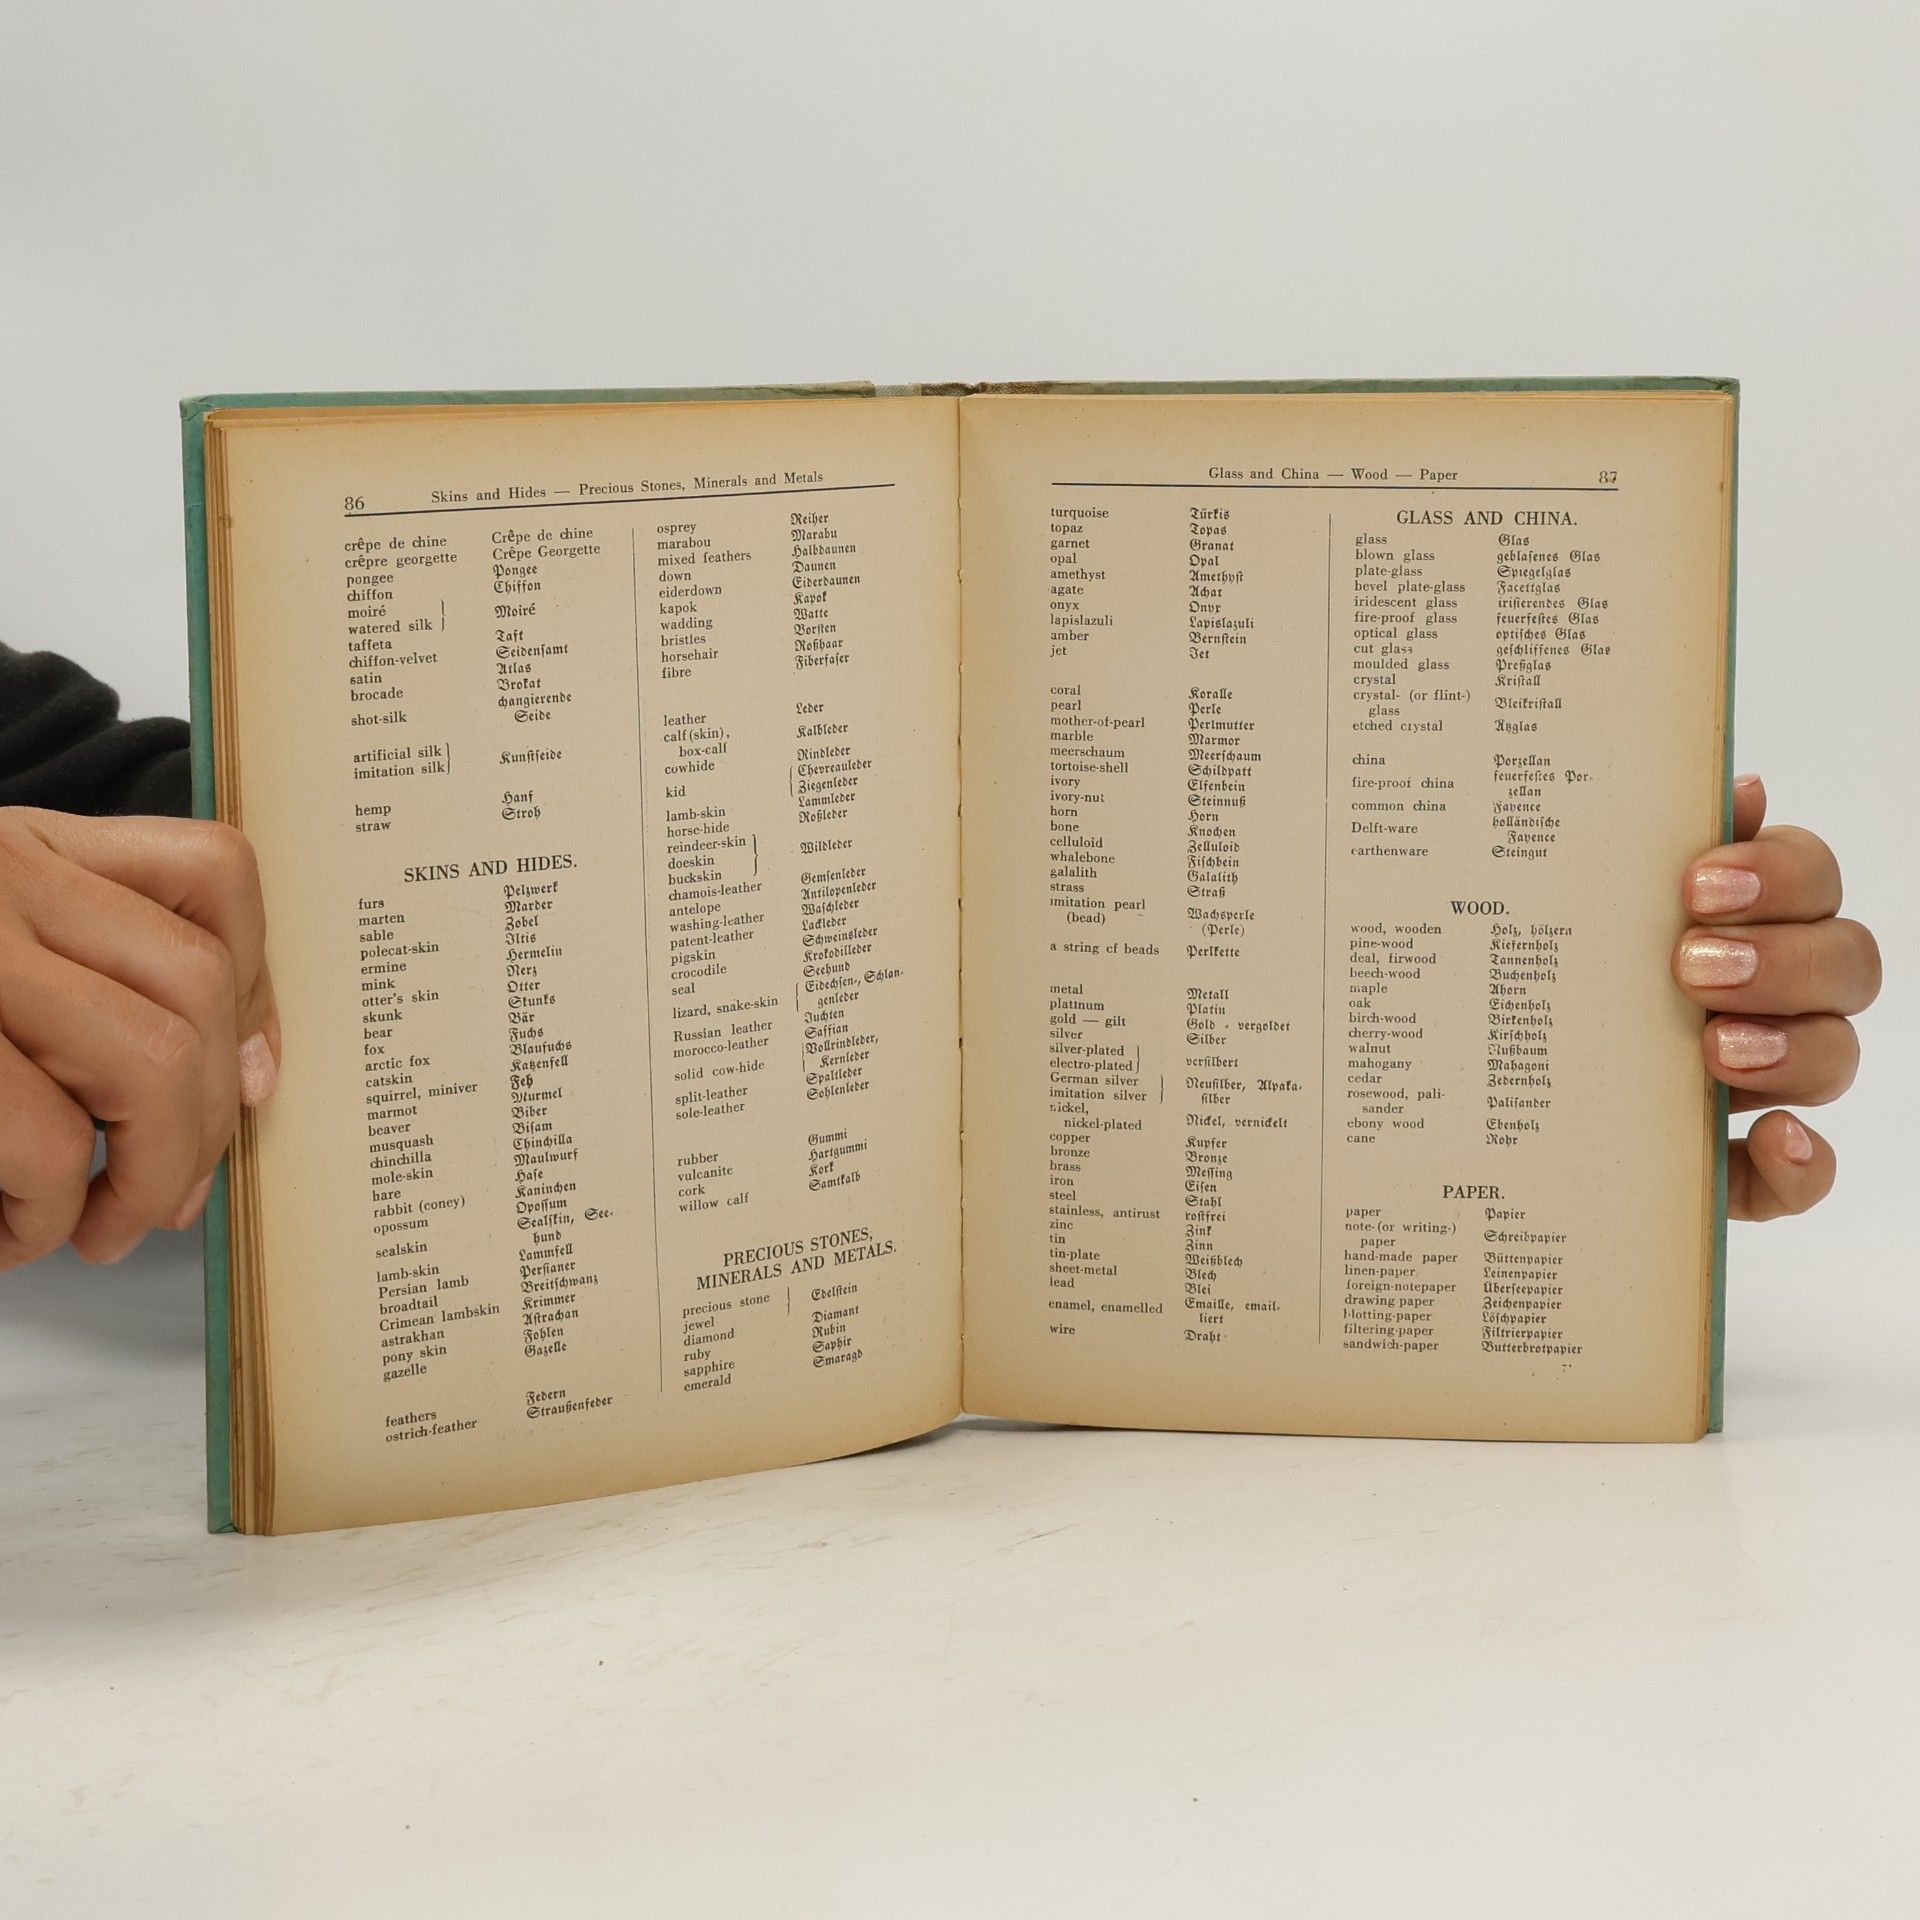 86 Skins and Hides — Precious Stones, Minerals and Metals
crêpe de chine Crêpe de chine
crêpre georgette Crêpe Georgette
pongee Pongee
chiffon Chiffon
moiré
watered silk } Moiré
taffeta Taft
chiffon-velvet Seidensamt
satin Atlas
brocade Brokat
shot-silk changierende
Seide
artificial silk
imitation silk } Kunstseide
hemp Hanf
straw Stroh
SKINS AND HIDES.
furs Pelzwerk
marten Marder
sable Zobel
polecat-skin Iltis
ermine Hermelin
mink Nerz
otter's skin Otter
skunk Skunks
bear Bär
fox Fuchs
arctic fox Blaufuchs
catskin Katzenfell
squirrel, miniver Feh
marmot Murmel
beaver Biber
musquash Bisam
chinchilla Chinchilla
mole-skin Maulwurf
hare Hase
rabbit (coney) Kaninchen
opossum Opossum
sealskin Sealskin, See-
hund
lamb-skin Lammfell
Persian lamb Persianer
broadtail Breitschwanz
Crimean lambskin Krimmer
astrakhan Astrachan
pony skin Fohlen
gazelle Gazelle
feathers Federn
ostrich-feather Straußenfeder
osprey Reiher
marabou Marabu
mixed feathers Halbdaunen
down Daunen
eiderdown Eiderdaunen
kapok Kapok
wadding Watte
bristles Borsten
horsehair Roßhaar
fibre Fiberfaser
leather Leder
calf (skin),
box-calf Kalbleder
cowhide Rindleder
kid { Chevreauleder
Ziegenleder
lamb-skin Lammleder
horse-hide Roßleder
reindeer-skin
doeskin
buckskin } Wildleder
chamois-leather Gemsenleder
antelope Antilopenleder
washing-leather Waschleder
patent-leather Lackleder
pigskin Schweinsleder
crocodile Krokodilleder
seal Seehund
lizard, snake-skin { Eidechsen-, Schlan-
genleder
Russian leather Juchten
morocco-leather Saffian
solid cow-hide { Vollrindleder,
Kernleder
split-leather Spaltleder
sole-leather Sohlenleder
rubber Gummi
vulcanite Hartgummi
cork Kork
willow calf Samtkalb
PRECIOUS STONES,
MINERALS AND METALS.
precious stone
jewel } Edelstein
diamond Diamant
ruby Rubin
sapphire Saphir
emerald Smaragd
Glass and China — Wood — Paper 87
turquoise Türkis
topaz Topas
garnet Granat
opal Opal
amethyst Amethyst
agate Achat
onyx Onyx
lapislazuli Lapislazuli
amber Bernstein
jet Jet
coral Koralle
pearl Perle
mother-of-pearl Perlmutter
marble Marmor
meerschaum Meerschaum
tortoise-shell Schildpatt
ivory Elfenbein
ivory-nut Steinnuß
horn Horn
bone Knochen
celluloid Zelluloid
whalebone Fischbein
galalith Galalith
strass Straß
imitation pearl Wachsperle
(bead) (Perle)
a string of beads Perlkette
metal Metall
platinum Platin
gold — gilt Gold - vergoldet
silver Silber
silver-plated
electro-plated } versilbert
German silver
imitation silver } Neusilber, Alpaka-
silber
nickel,
nickel-plated Nickel, vernickelt
copper Kupfer
bronze Bronze
brass Messing
iron Eisen
steel Stahl
stainless, antirust rostfrei
zinc Zink
tin Zinn
tin-plate Weißblech
sheet-metal Blech
lead Blei
enamel, enamelled Emaille, email-
liert
wire Draht
GLASS AND CHINA.
glass Glas
blown glass geblasenes Glas
plate-glass Spiegelglas
bevel plate-glass Facettglas
iridescent glass irisierendes Glas
fire-proof glass feuerfestes Glas
optical glass optisches Glas
cut glass geschliffenes Glas
moulded glass Preßglas
crystal Kristall
crystal- (or flint-)
glass Bleikristall
etched crystal Ätzglas
china Porzellan
fire-proof china feuerfestes Por-
zellan
common china Fayence
Delft-ware holländische
Fayence
earthenware Steingut
WOOD.
wood, wooden Holz, hölzern
pine-wood Kiefernholz
deal, firwood Tannenholz
beech-wood Buchenholz
maple Ahorn
oak Eichenholz
birch-wood Birkenholz
cherry-wood Kirschholz
walnut Nußbaum
mahogany Mahagoni
cedar Zedernholz
rosewood, pali-
sander Palisander
ebony wood Ebenholz
cane Rohr
PAPER.
paper Papier
note- (or writing-)
paper Schreibpapier
hand-made paper Büttenpapier
linen-paper Leinenpapier
foreign-notepaper Überseepapier
drawing paper Zeichenpapier
blotting-paper Löschpapier
filtering-paper Filtrierpapier
sandwich-paper Butterbrotpapier